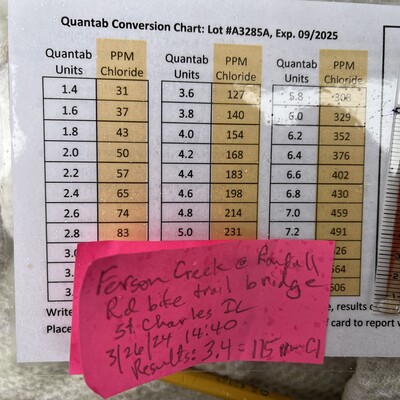 Quantab Conversion Chart: Lot #A3285A, Exp. 09/2025
Quantab Units PPM Chloride Quantab Units PPM Chloride Quantab Units PPM Chloride
1.4 31 3.6 127 5.8 308
1.6 37 3.8 140 6.0 329
1.8 43 4.0 154 6.2 352
2.0 50 4.2 168 6.4 376
2.2 57 4.4 183 6.6 402
2.4 65 4.6 198 6.8 430
2.6 74 4.8 214 7.0 459
2.8 83 5.0 231 7.2 491
3.0 26
3. 564
3. 606
Write , results
Place card to report
Ferson Creek @ Randall
Rd bike trail bridge
St. Charles IL
3/26/24 14:40
Results: 3.4 = 115 ppm Cl